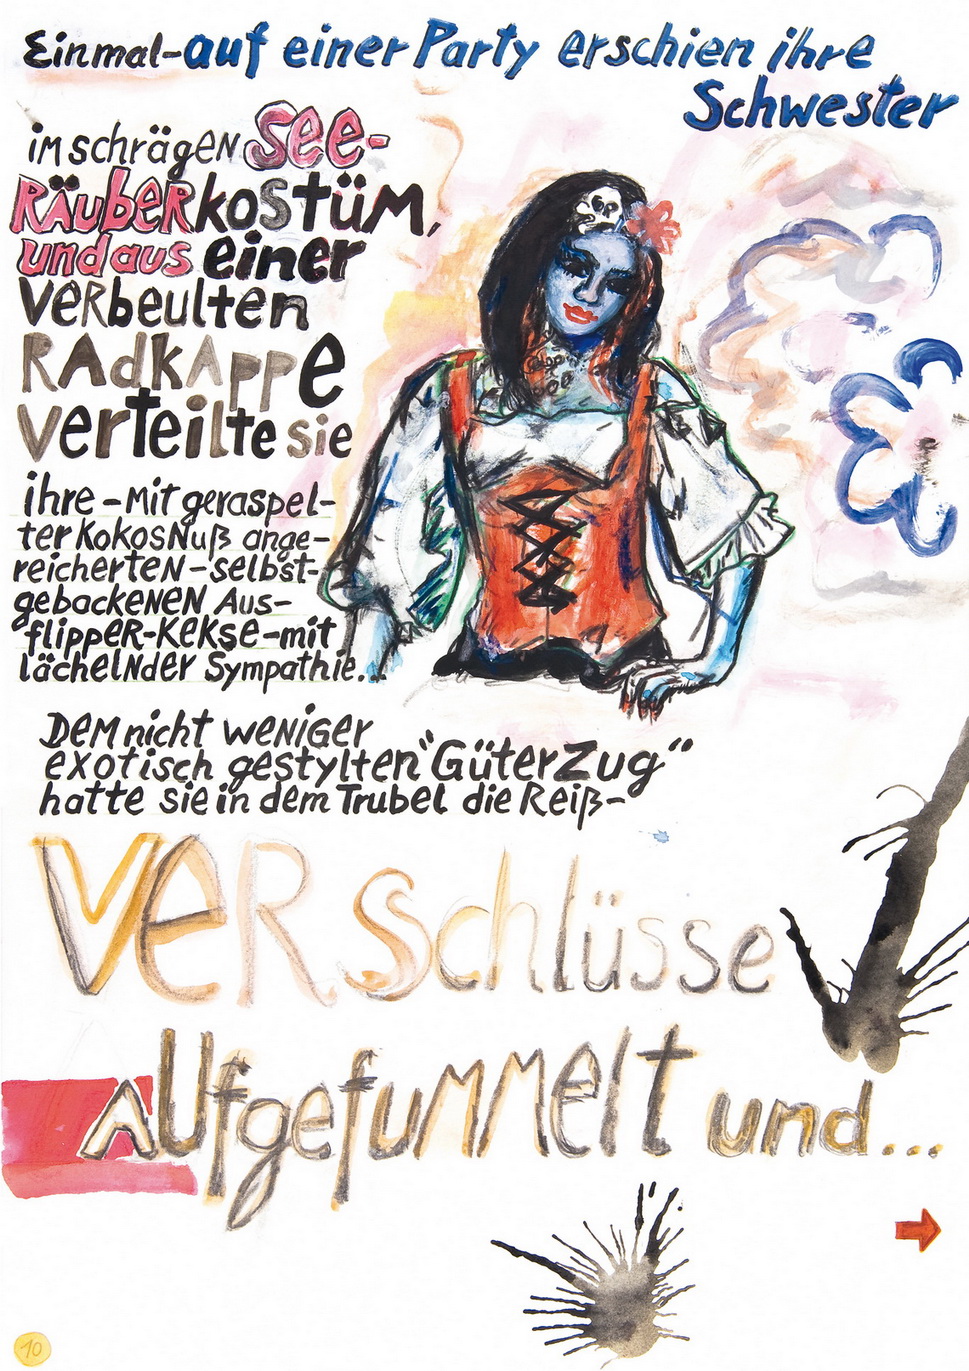 Einmal-auf einer Party erschien ihre
Schwester
im schrägen See-
Räuberkostüm,
und aus einer
verbeulten
Radkappe
verteilte sie
ihre - mit geraspel-
ter Kokosnuß ange-
reicherten - selbst-
gebackenen Aus-
flipper-Kekse - mit
lächelnder Sympathie..
Dem nicht weniger
exotisch gestylten "Güterzug"
hatte sie in dem Trubel die Reiß-
Verschlüsse
Aufgefummelt und...
10